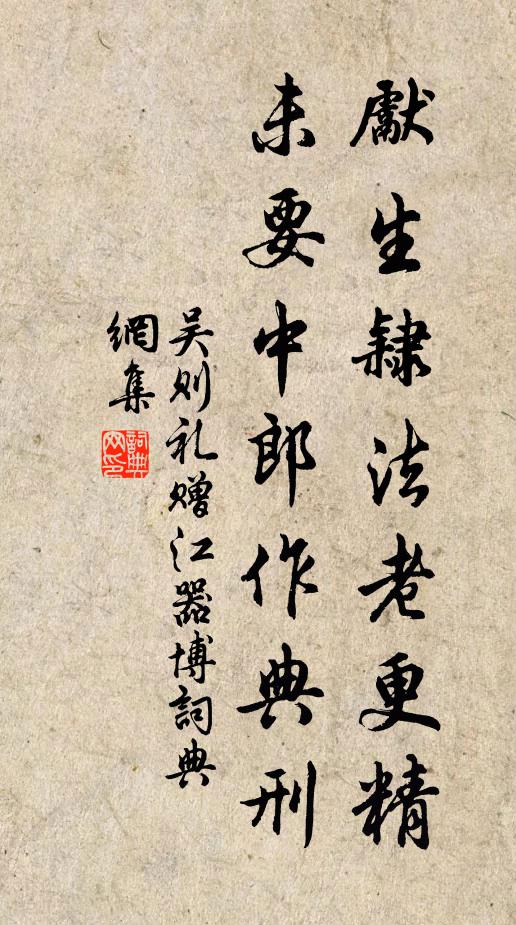 獻生隸法老更精
未要中郎作典刑
吴则礼赠江器博詞典
網集
詞典網印